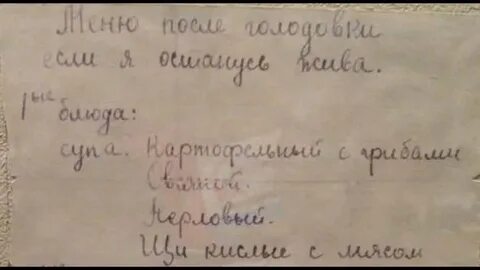 Меню после голодовки
если я останусь жива.
1ые блюда:
супа. Картофельный с грибами
Овсяной.
Перловый.
Щи кислые с мясом